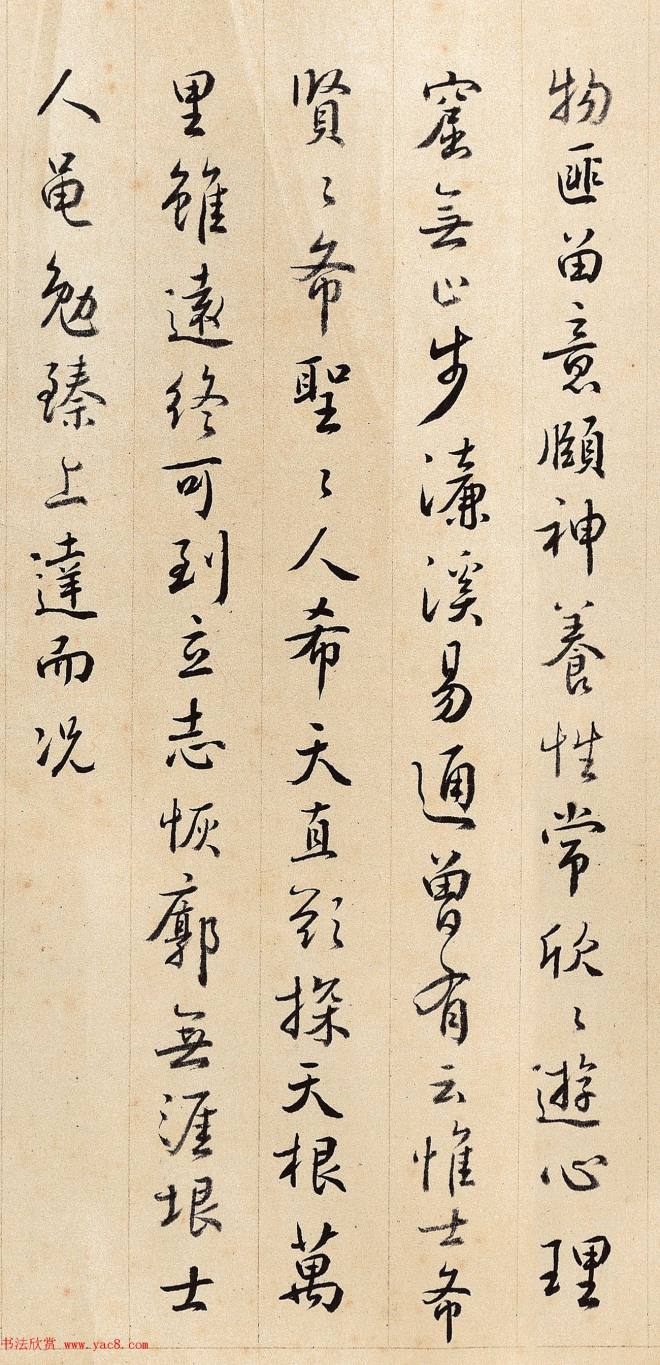 物匪留意頤神養性常欣〻遊心理
窟無止步濂溪易通曾有云惟士希
賢〻希聖〻人希天直欲探天根萬
里雖遠終可到立志恢廓無涯垠士
人黽勉臻上達而況
书法欣赏 www.yac8.com